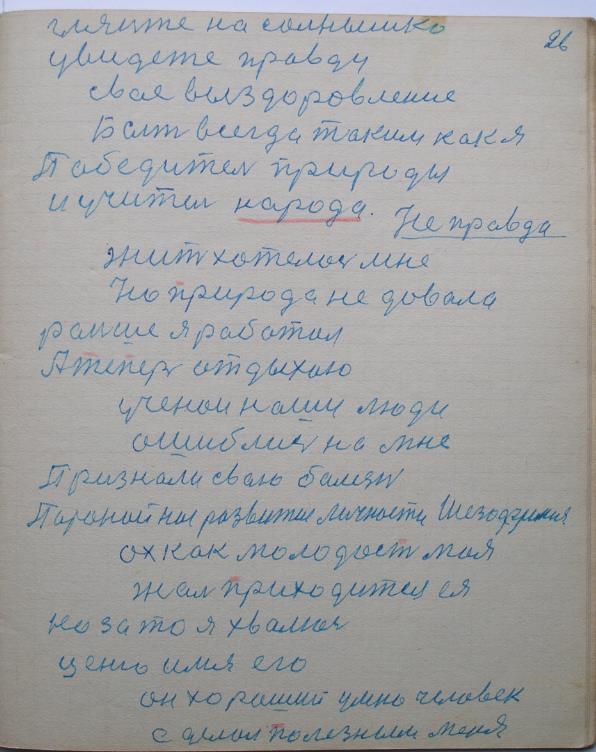 26
гляите на солнышко
увидете правду
свае выздоровление
Балт всегда таким как я
Победител природы
и учител народа.
Не правда
жит хотелос мне
Но природа не довала
ранше я работал
А тепер отдыхаю
ученои наши люди
ошиблис на мне
Признали сваю балезн
Параной ное развитие личности Шезофрения
ох как молодост моя
жал приходится ея
но за то я хвалюс
ценю имя его
он хороший умно человек
с делал полезным меня